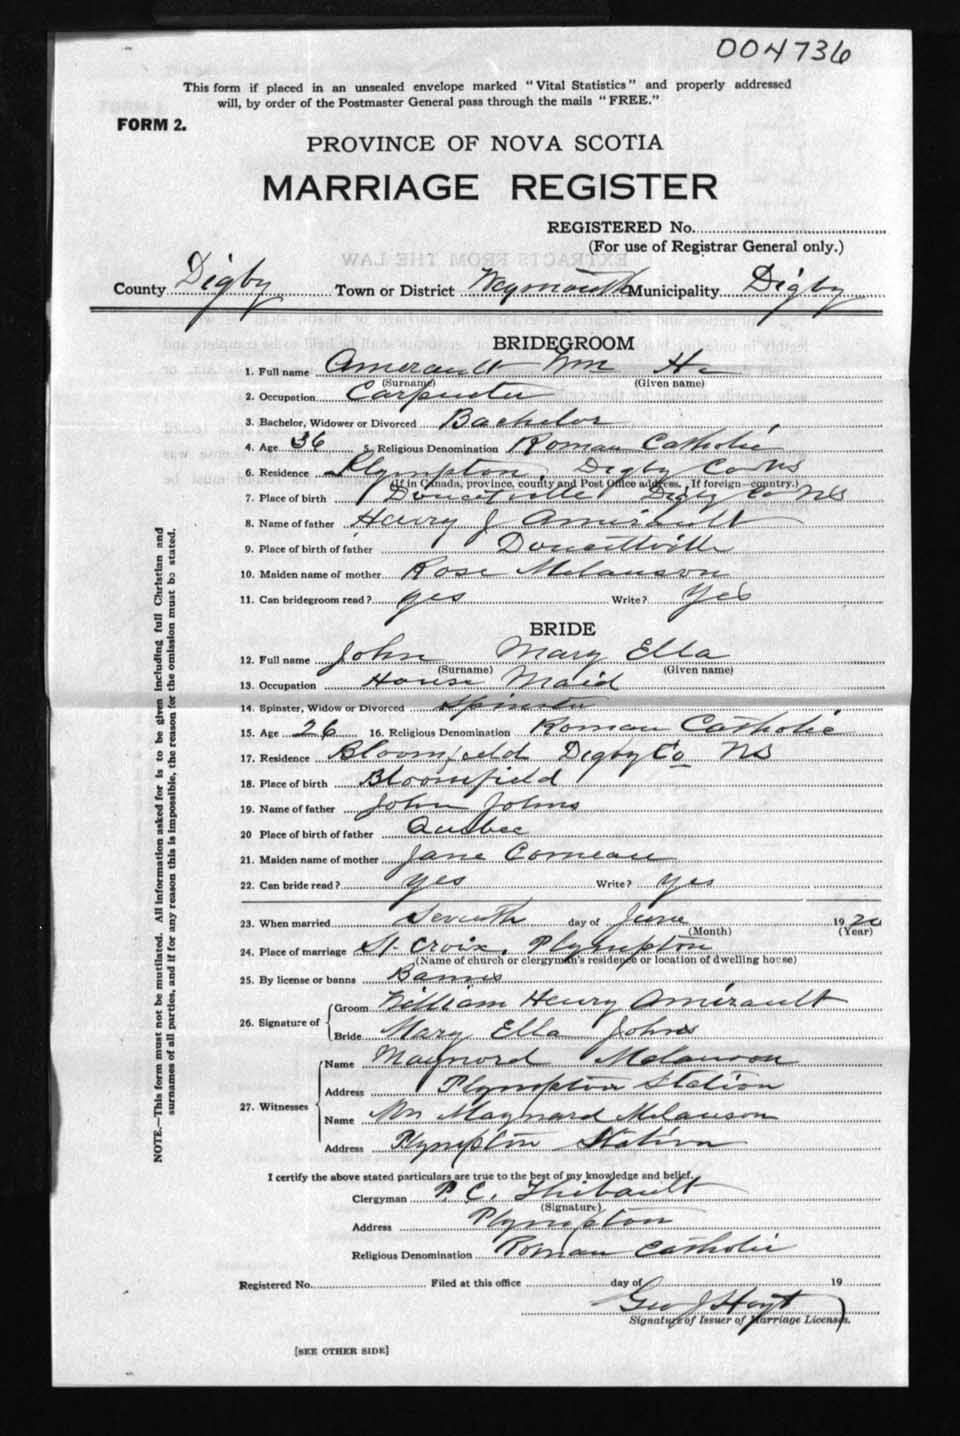 004736
This form if placed in an unsealed envelope marked "Vital Statistics" and properly addressed
will, by order of the Postmaster General pass through the mails "FREE."
FORM 2.
PROVINCE OF NOVA SCOTIA
MARRIAGE REGISTER
REGISTERED No.
(For use of Registrar General only.)
EXTRACTS FROM THE LAW
County Digby Town or District Weymouth Municipality Digby
BRIDEGROOM
1. Full name Amerault Wm H
(Surname) (Given name)
2. Occupation Carpenter
3. Bachelor, Widower or Divorced Bachelor
4. Age 36 5. Religious Denomination Roman Catholic
6. Residence Plympton Digby Co NS
(If in Canada, province, county and Post Office address. If foreign—country.)
7. Place of birth Doucetville Digby Co NS
8. Name of father Henry J Amirault
9. Place of birth of father Doucettville
10. Maiden name of mother Rose Melanson
11. Can bridegroom read? yes Write? Yes
BRIDE
12. Full name John Mary Ella
(Surname) (Given name)
13. Occupation House Maid
14. Spinster, Widow or Divorced Spinster
15. Age 26 16. Religious Denomination Roman Catholic
17. Residence Bloomfield Digby Co NS
18. Place of birth Bloomfield
19. Name of father John Johns
20 Place of birth of father Quebec
21. Maiden name of mother Jane Comeau
22. Can bride read? yes Write? yes
23. When married Seventh day of June 1920
(Month) (Year)
24. Place of marriage St. Croix, Plympton
(Name of church or clergyman's residence or location of dwelling house)
25. By license or banns Banns
26. Signature of Groom William Henry Amirault
Bride Mary Ella Johns
27. Witnesses Name Maynord Melanson
Address Plympton Station
Name Mrs Maynard Melanson
Address Plympton Station
I certify the above stated particulars are true to the best of my knowledge and belief.
Clergyman P. C. Thibault
(Signature)
Address Plympton
Religious Denomination Roman Catholic
Registered No. Filed at this office day of 19
Geo J Hoyt
Signature of Issuer of Marriage Licenses.
[SEE OTHER SIDE]
NOTE.—This form must not be mutilated. All information asked for is to be given including full Christian and
surnames of all parties, and if for any reason this is impossible, the reason for the omission must be stated.